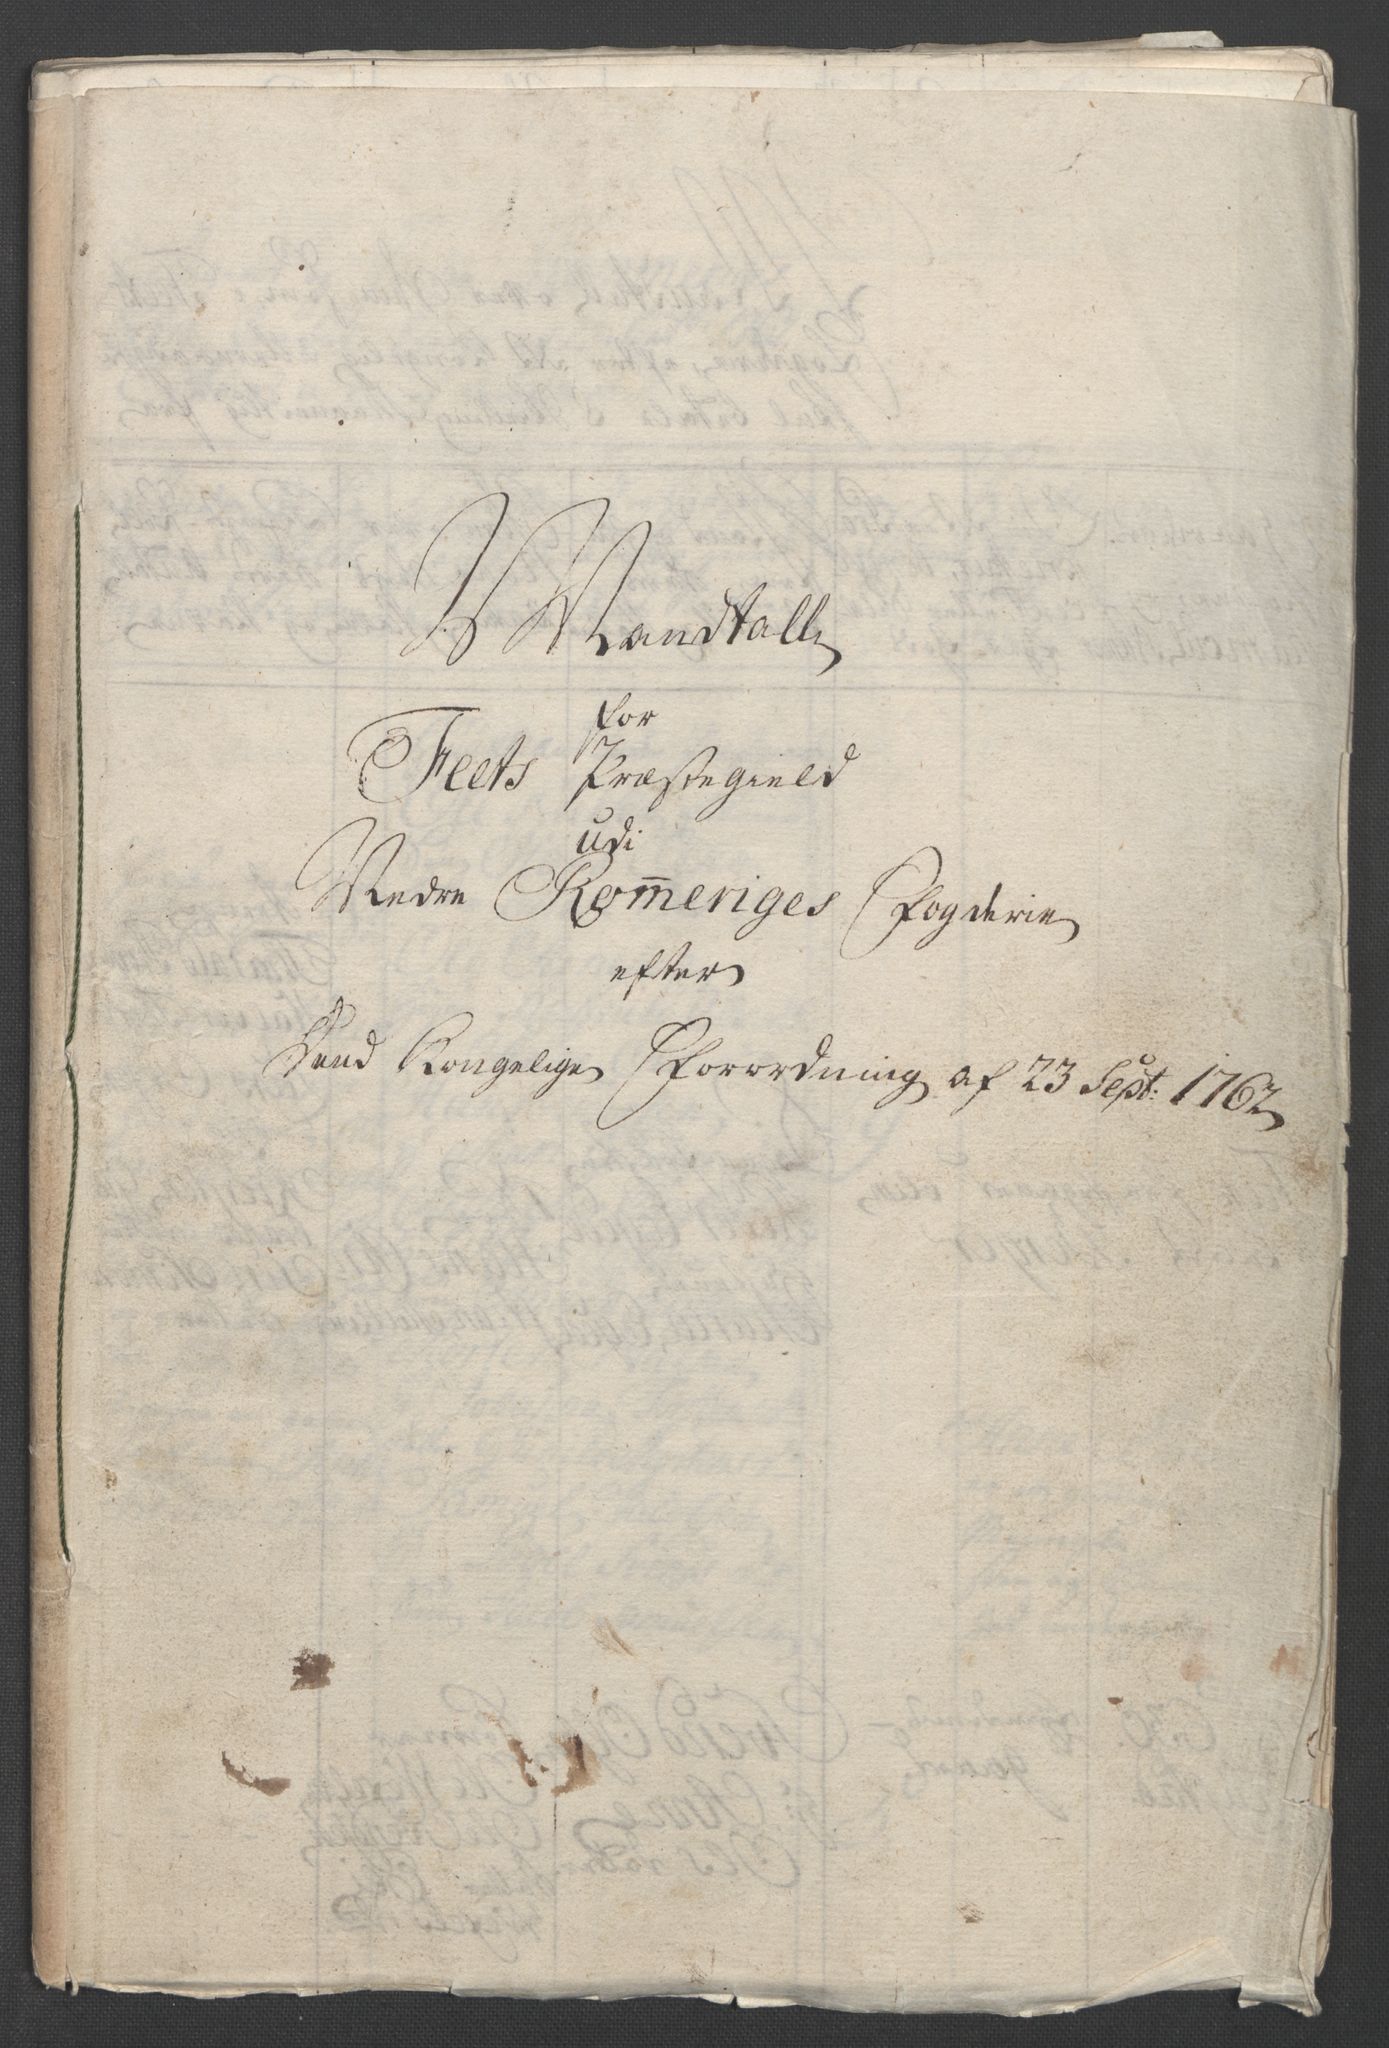 Mandtall
for
Feets Præstegield
udi
Nedre Rom̅eriges Fogderie
efter
Kongelige Forordning af 23 Sept: 1762